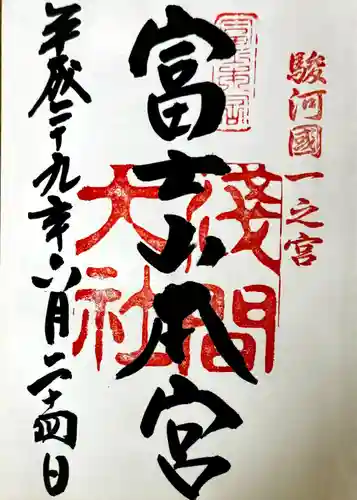 駿河國一之宮
富士山本宮
淺間大社
平成二十九年六月二十四日